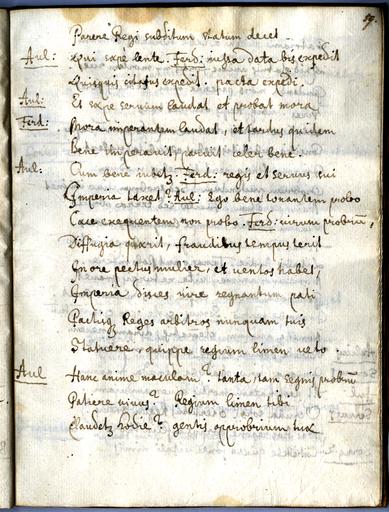 59.
Parere Regi subditum statum decet.
Aul: sæpe lente. Ferd: iussa data bis expedit
Quisquis citatus expedit. facta expedi.
Aul: Et sæpe servum laudat et probat mora
Ferd: Mora imperantem laudat, et tardus quidem
Bene imperavit, paruit celer bene.
Aul: Cum bene iubet. Ferd: regis et servus sui
Imperia taxet? Aul: Ego bene probo
exequentem non probo. Ferd: virum probum,
Diffugia quærit, fraudibus tempus terit
pectus mulier, et ventos habet,
Imperia disces iure regnantum pati
Reges arbitros nunquam tuis
Statuere, quippe regium limen veto
Aul Hanc anime maculam? tanta, tam segnis probra
Patiere vivus? Regium limen tibi
hodie? gentis opprobrium tuæ